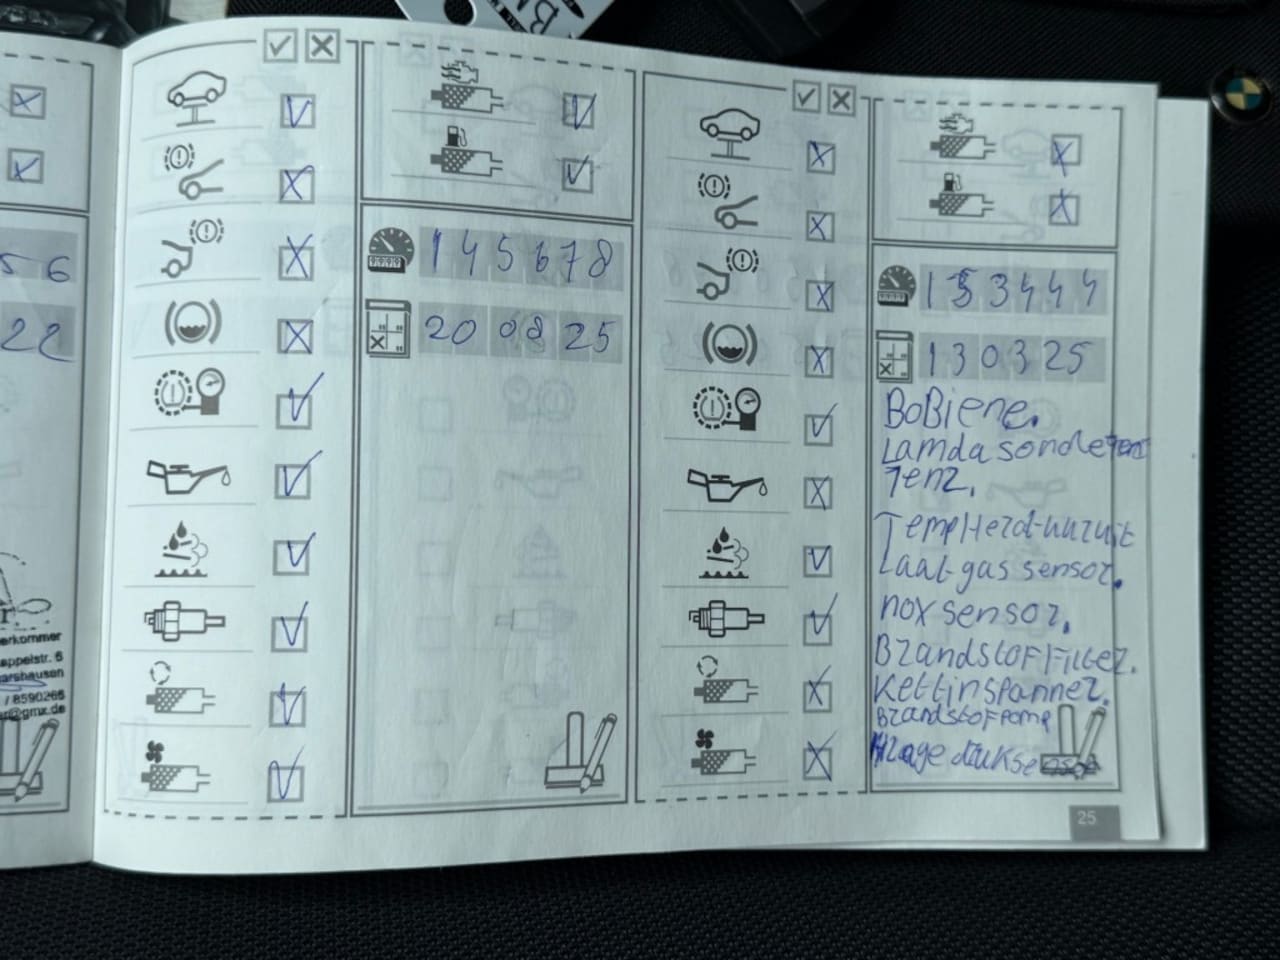 56
22
erkommer
appelstr. 6
arshausen
/ 8590265
r@gmx.de
145678
20 08 25
153444
130325
BoBiene.
Lamda sonde
Tenz.
Temp
Laat gas sensor.
nox sensor.
BrandstofFilter.
Kettinspanner.
Brandstofpomp
Hoge dukse
25